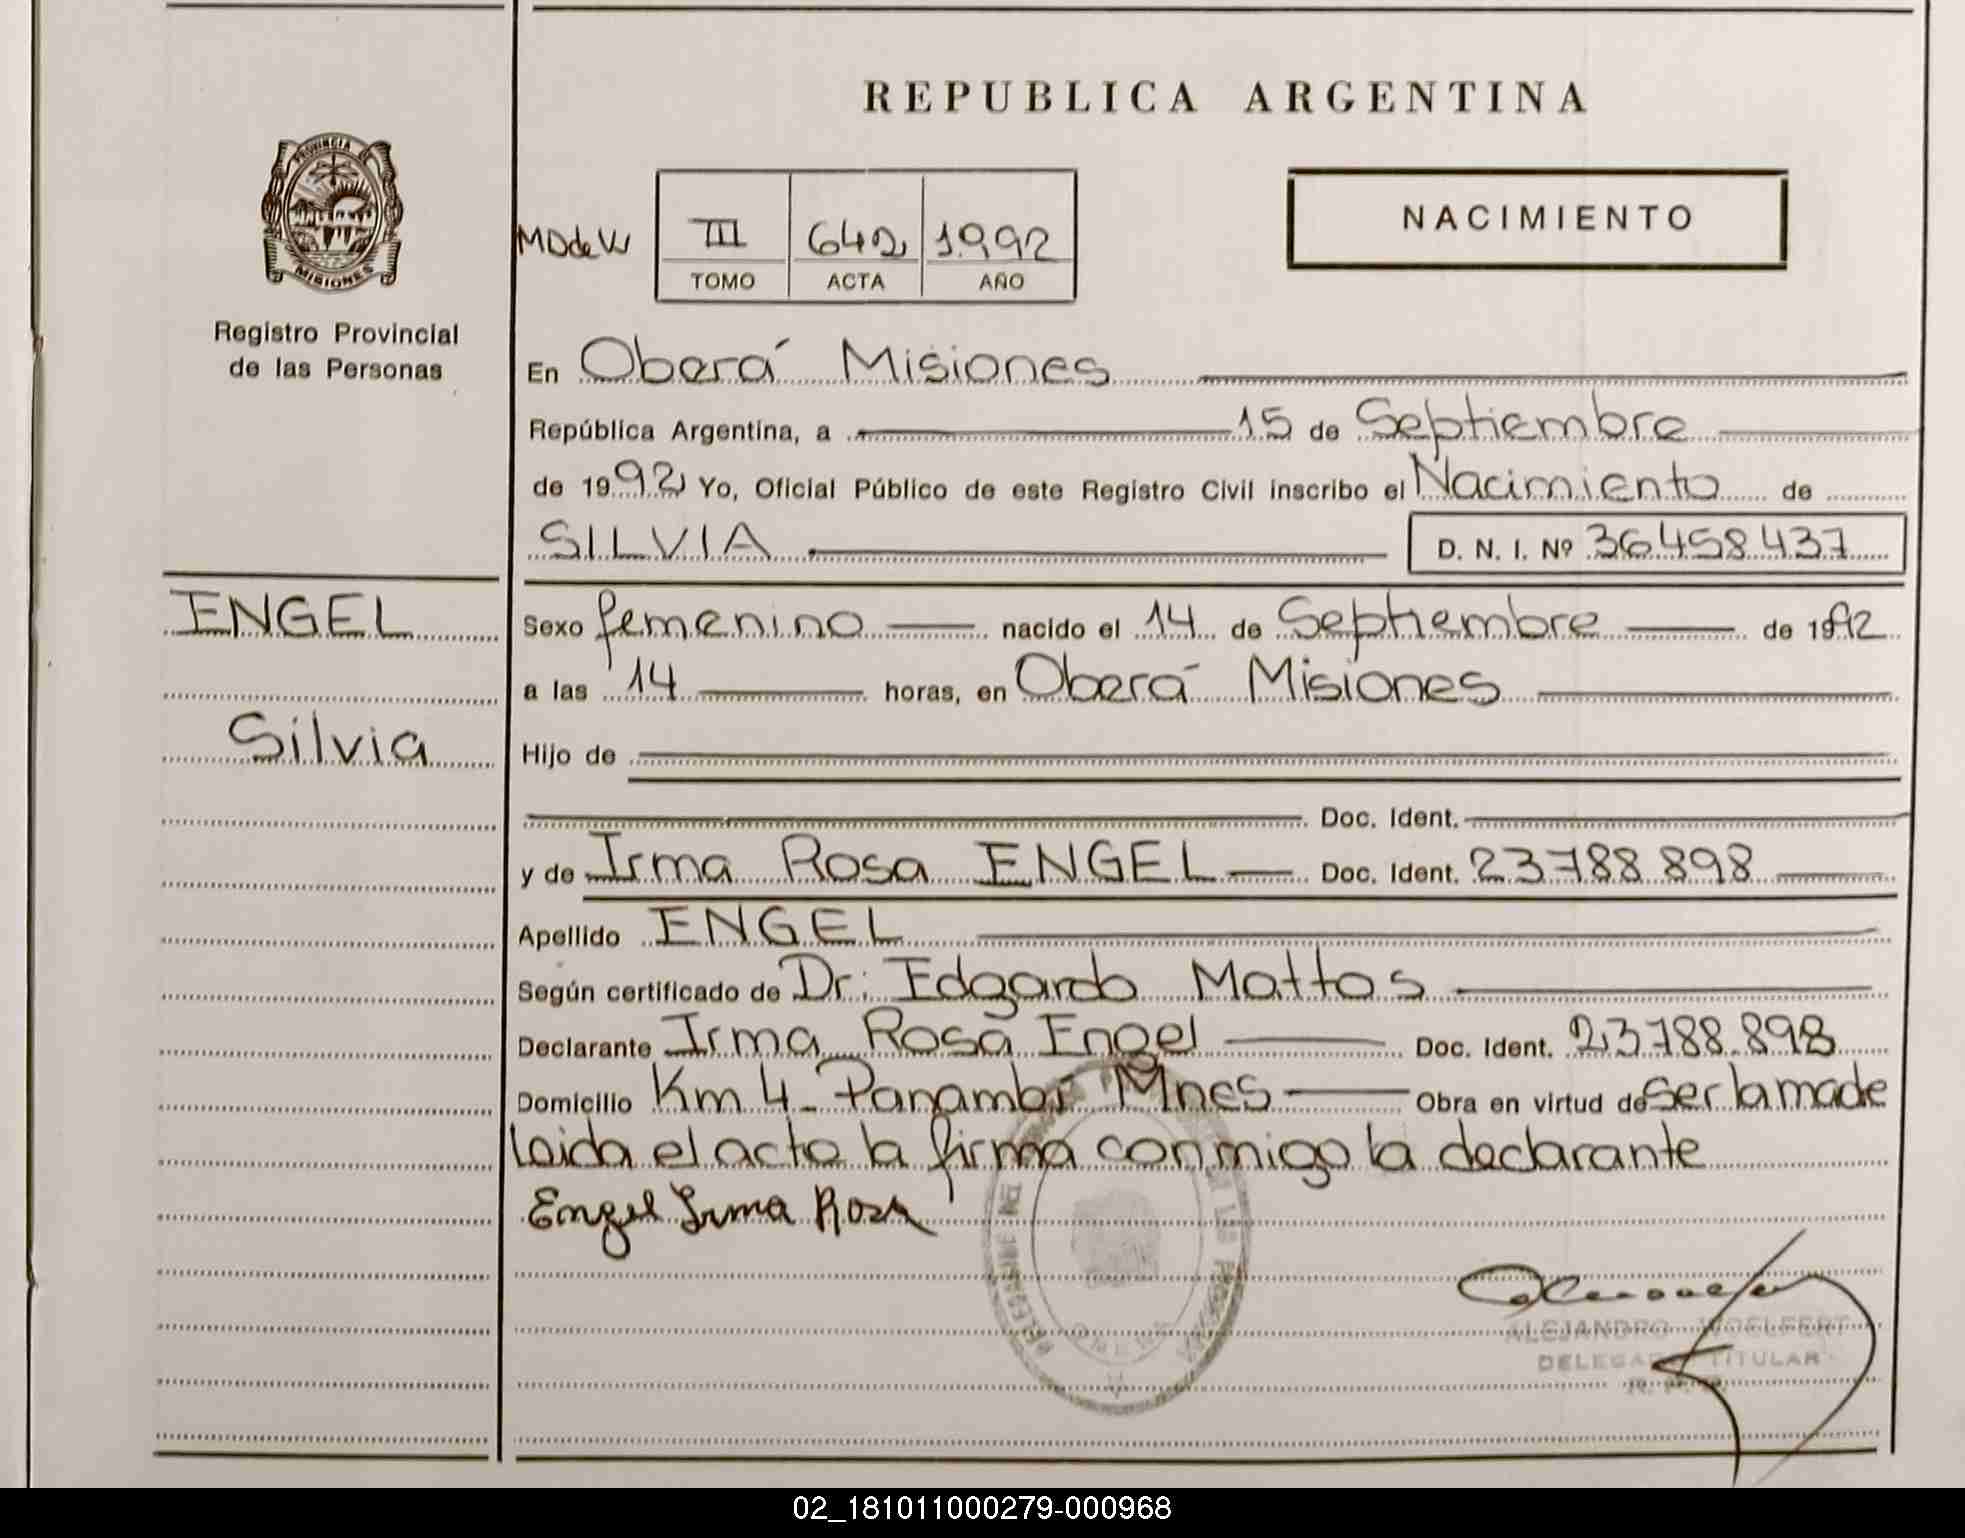 REPUBLICA ARGENTINA
PROVINCIA DE
MISIONES
Registro Provincial
de las Personas
III 642 1992
TOMO ACTA AÑO
NACIMIENTO
En Oberá Misiones
República Argentina, a 15 de Septiembre
de 1992 Yo, Oficial Público de este Registro Civil inscribo el Nacimiento de
SILVIA D. N. I. Nº 36458437
ENGEL
Silvia
Sexo femenino nacido el 14 de Septiembre de 1992
a las 14 horas, en Oberá Misiones
Hijo de
Doc. Ident.
y de Irma Rosa ENGEL Doc. Ident. 23788898
Apellido ENGEL
Según certificado de Dr: Edgardo Mattos
Declarante Irma Rosa Engel Doc. Ident. 23788.898
Domicilio Km 4 - Panambí Mnes Obra en virtud de ser la made
Leida el acta la firma conmigo la declarante
Engel Irma Rosa
ALEJANDRO WOELFERT
DELEGADO TITULAR
02_181011000279-000968